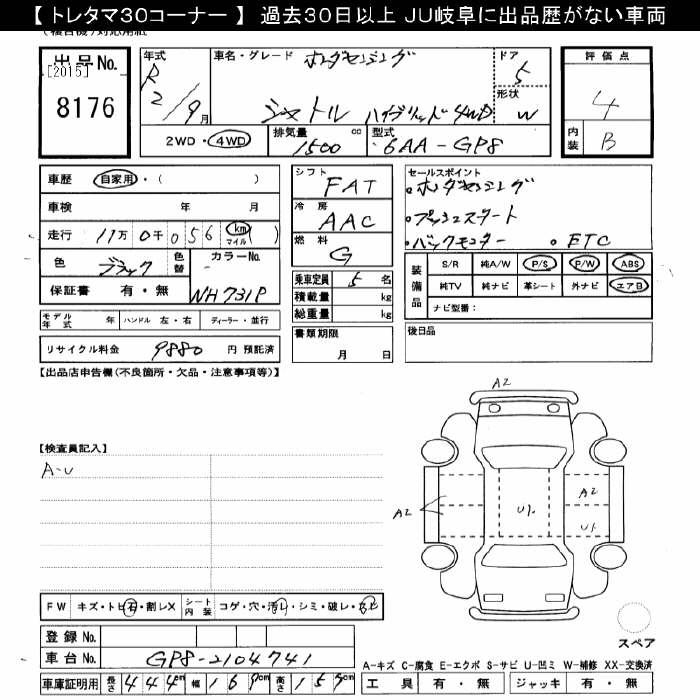 【 トレタマ30コーナー 】 過去30日以上 JU岐阜に出品歴がない車両
(複合機)対応用紙
出品No.
[2015]
8176
年式 R 2/9月
車名・グレード ホンダセンシング
シャトル ハイブリッド4WD
ドア 5
形状 W
評価点
4
内装 B
2WD・4WD
排気量 1500 cc
型式 6AA-GP8
車歴 自家用・( )
車検 年 月
走行 11万 0千 056 (km マイル)
色 ブラック 色替 カラーNo. NH731P
保証書 有・無
シフト FAT
冷房 AAC
燃料 G
乗車定員 5 名
積載量 kg
総重量 kg
セールスポイント
・ホンダセンシング
・プッシュスタート
・バックモニター ・ETC
装備品
S/R 純A/W P/S P/W ABS
純TV 純ナビ 革シート 外ナビ エアB
ナビ型番:
モデル年式 年 ハンドル 左・右 ディーラー・並行
リサイクル料金 9880 円 預託済
書類期限
月 日
後日品
【出品店申告欄(不良箇所・欠品・注意事項等)】
A2
【検査員記入】
A-U
A2
A2
U1.
U1.
FW キズ・トビ石・割レX シート内装 コゲ・穴・汚レ・シミ・破レ・カビ
登録No.
車台No. GP8-2104741
スペア
A-キズ C-腐食 E-エクボ S-サビ U-凹ミ W-補修 XX-交換済
車庫証明用 長さ 444cm 幅 169cm 高さ 157cm
工具 有・無 ジャッキ 有・無